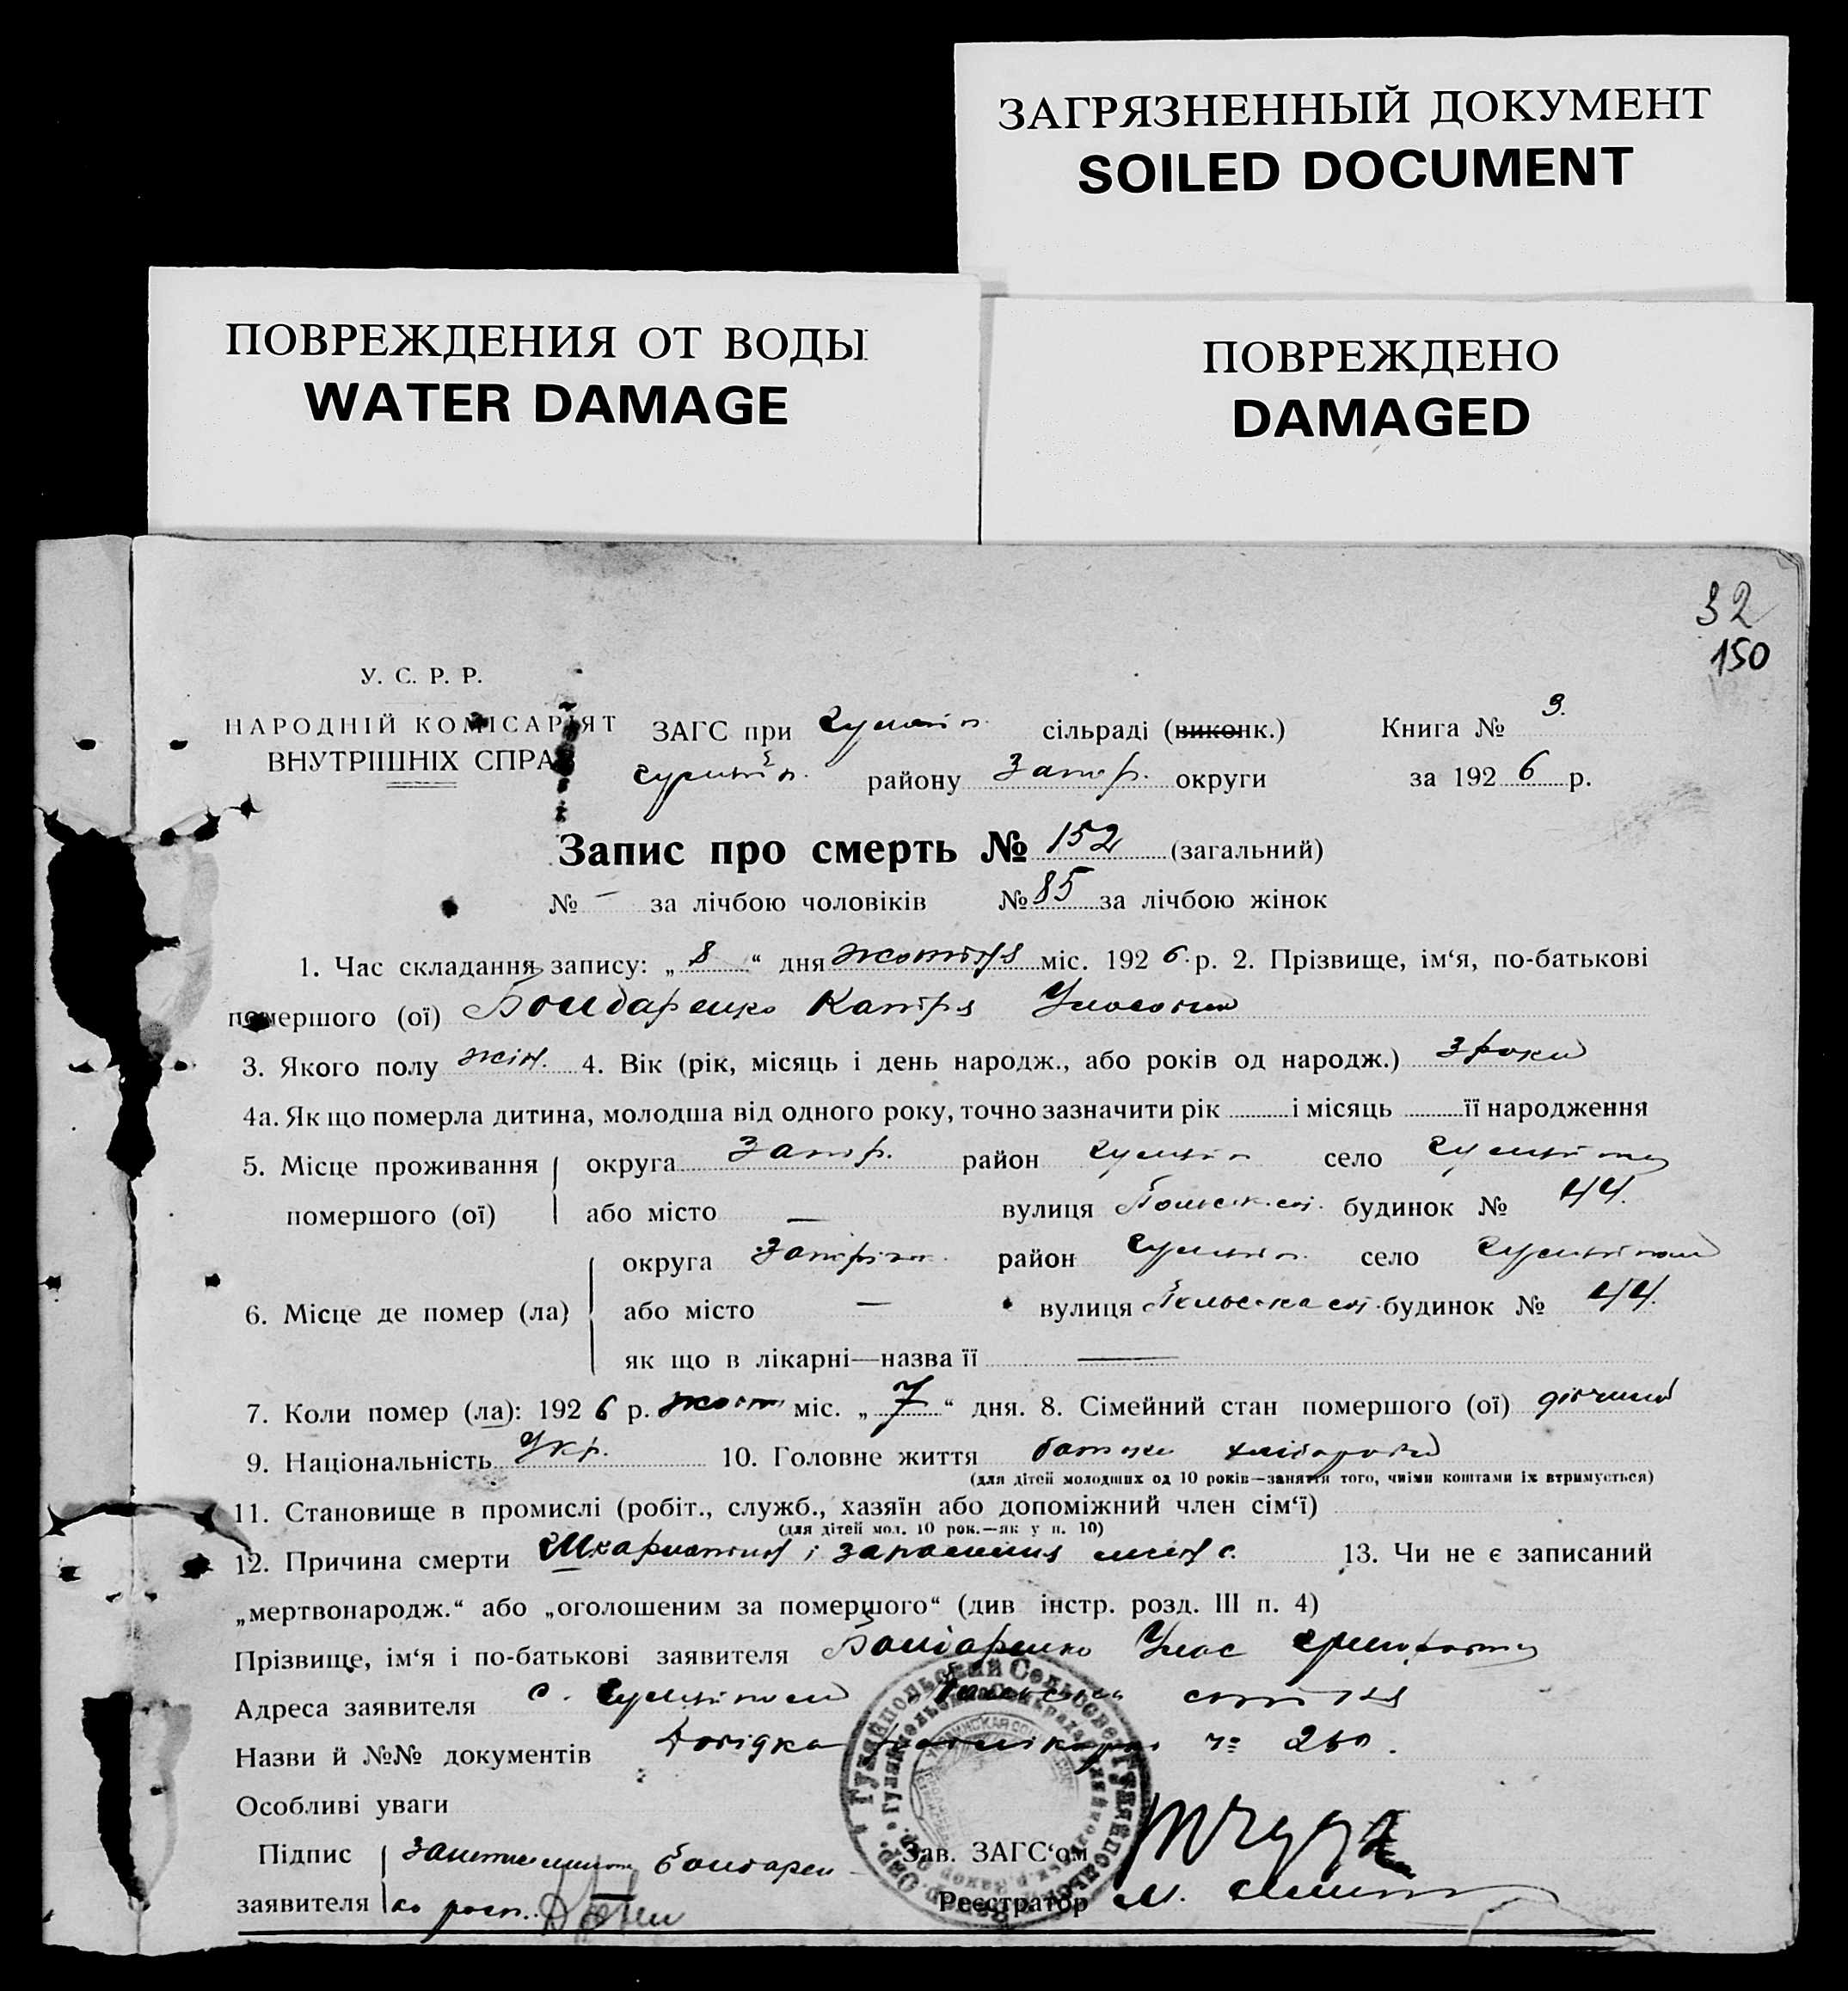 ЗАГРЯЗНЕННЫЙ ДОКУМЕНТ
SOILED DOCUMENT
ПОВРЕЖДЕНИЯ ОТ ВОДЫ
WATER DAMAGE
ПОВРЕЖДЕНО
DAMAGED
32
150
У. С. Р. Р.
НАРОДНІЙ КОМІСАРІЯТ
ВНУТРІШНІХ СПРАВ
ЗАГС при сільраді (виконк.) Книга № 3.
району Запор. округи за 1926 р.
Запис про смерть № 152 (загальний)
№ – за лічбою чоловіків № 85 за лічбою жінок
1. Час складання запису: „8“ дня жовтня міс. 1926 р. 2. Прізвище, ім‘я, по-батькові
помершого (ої) Бондаренко Катря Уласовна
3. Якого полу жін. 4. Вік (рік, місяць і день народж., або років од народж.) 3 роки
4а. Як що померла дитина, молодша від одного року, точно зазначити рік і місяць її народження
5. Місце проживання округа Запор. район село
помершого (ої) або місто — вулиця будинок № 44.
округа район село
6. Місце де помер (ла) або місто — вулиця будинок № 44.
як що в лікарні—назва її —
7. Коли помер (ла): 1926 р. жовт міс. „7“ дня. 8. Сімейний стан помершого (ої) дівчина
9. Національність Укр. 10. Головне життя батьки хлібороби
(для дітей молодших од 10 років—заняття того, чиїми коштами їх втримується)
11. Становище в промислі (робіт., служб., хазяїн або допоміжний член сім‘ї)
(для дітей мол. 10 рок.—як у п. 10)
12. Причина смерти Шкарлатина і запалення 13. Чи не є записаний
„мертвонародж.“ або „оголошеним за помершого“ (див інстр. розд. III п. 4)
Прізвище, ім‘я і по-батькові заявителя Бондаренко Улас
Адреса заявителя с.
Назви й №№ документів Довідка
Особливі уваги
Підпис Бондарен
заявителя ко
Зав. ЗАГС‘ом
Реєстратор